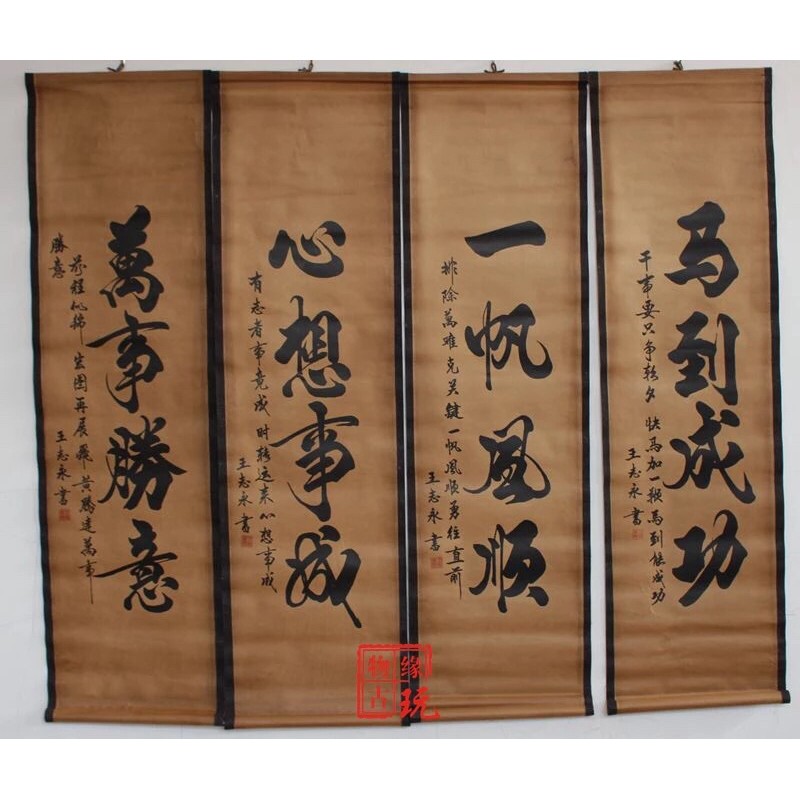 马到成功
干事要只争朝夕 快马加一鞭马到能成功
王志永書
一帆風顺
排除萬难克关键一帆風顺勇往直前
王志永書
心想事成
有志者事竟成 时转运来心想事成
王志永書
萬事勝意
前程似锦 宏图再展 飛黄腾達萬事
勝意
王志永書
物缘
古玩